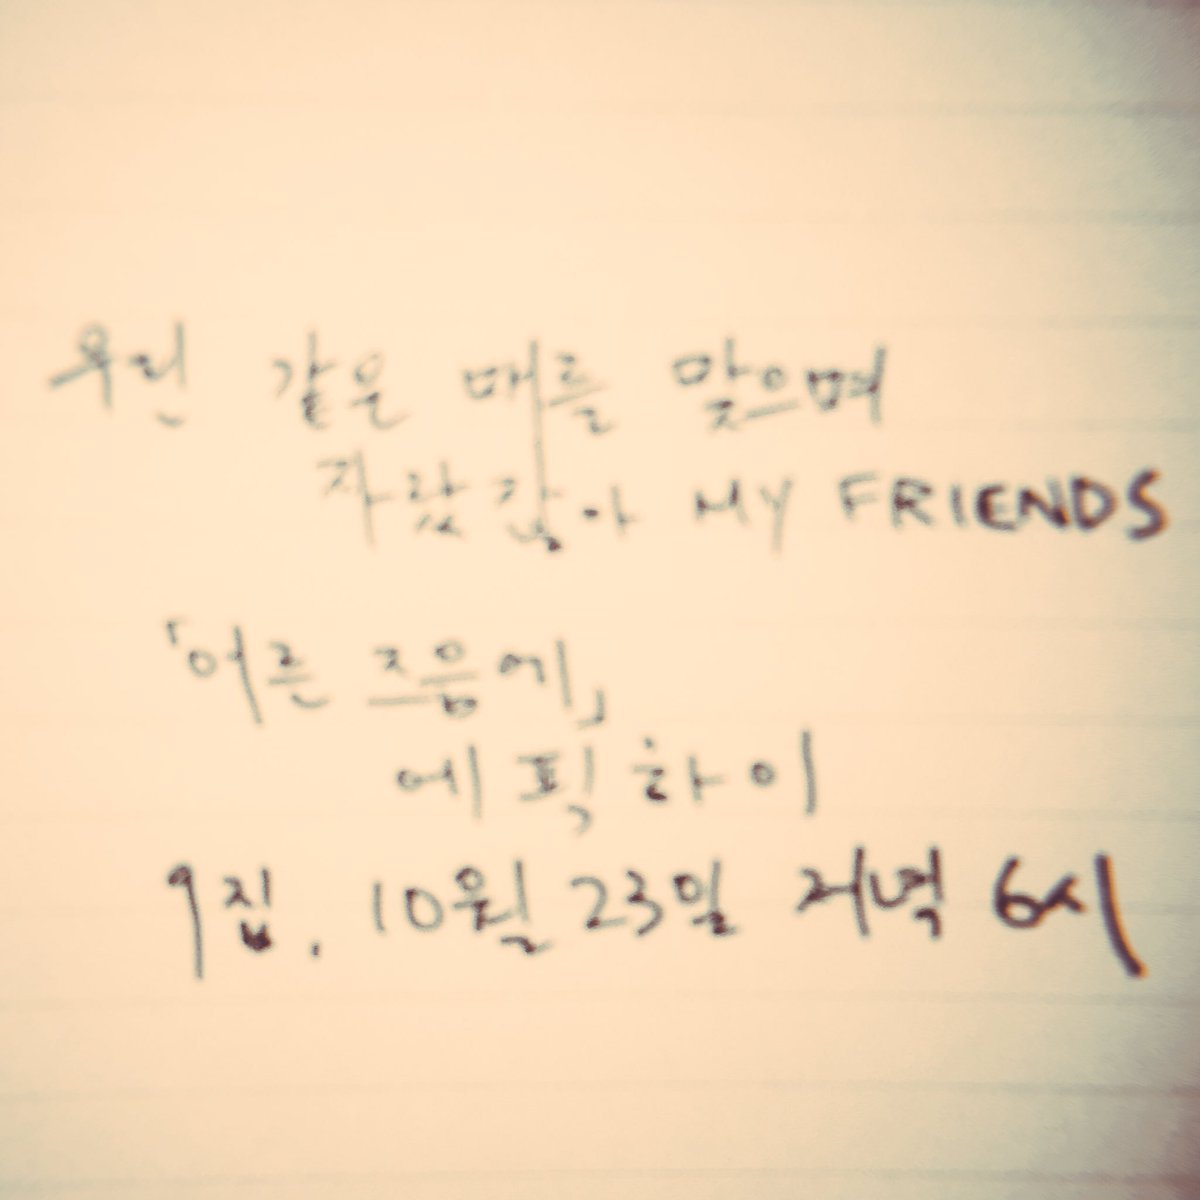 우린 같은 매를 맞으며
자랐잖아 MY FRIENDS
「어른 즈음에」
에픽하이
9집. 10월 23일 저녁 6시